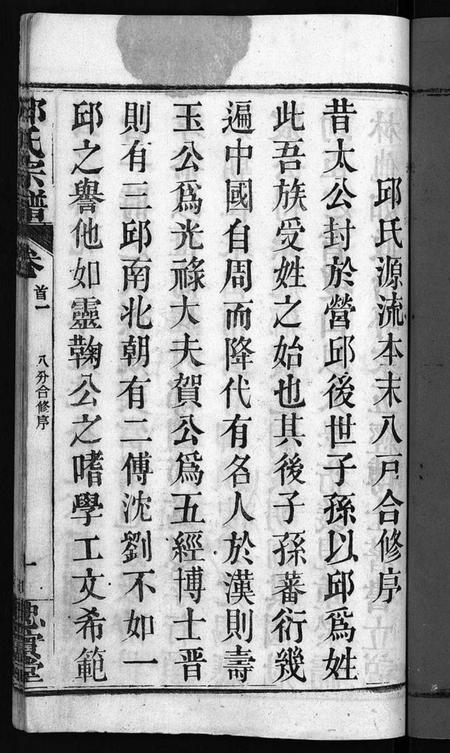 邱氏源流本末八戸合修序
昔太公封於營邱後世子孫以邱爲姓
此吾族受姓之始也其後子孫蕃衍幾
遍中國自周而降代有名人於漢則壽
玉公爲光祿大夫賀公爲五經博士晋
則有三邱南北朝有二傅沈劉不如一
邱之譽他如靈鞠公之嗜學工文希範
邱氏宗譜
卷
首一
八分合修序
一
忠實堂